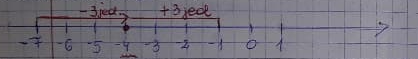 -3jed +3jed
-7 -6 -5 -4 -3 -2 -1 0 1